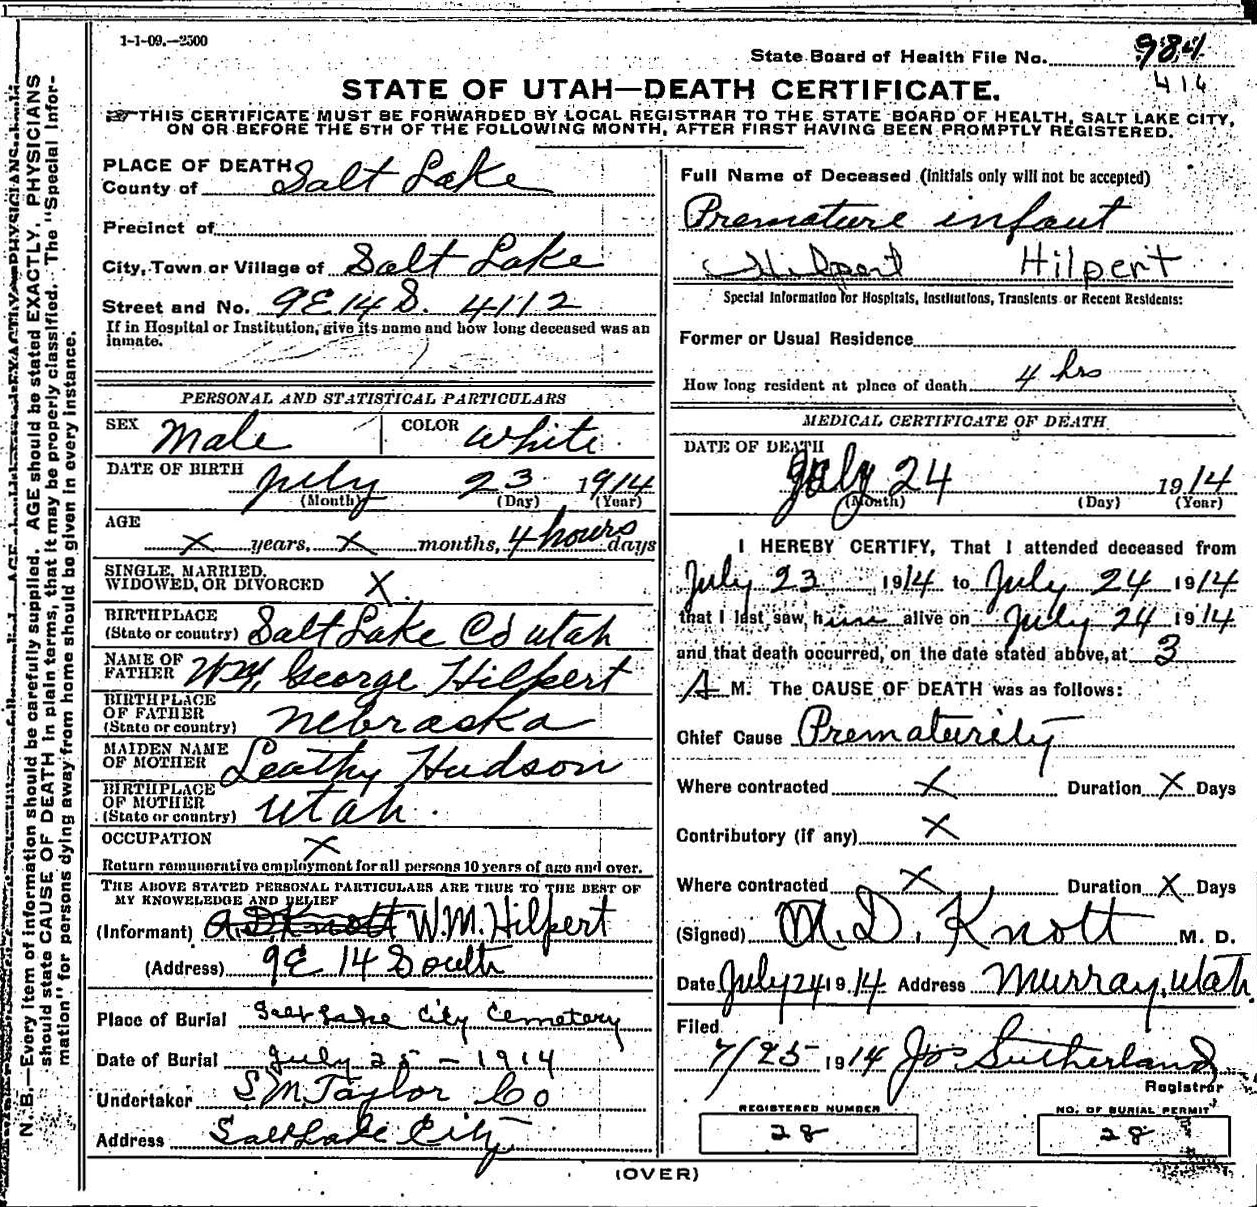 1-1-09.—2500
State Board of Health File No. 984
416
STATE OF UTAH—DEATH CERTIFICATE.
THIS CERTIFICATE MUST BE FORWARDED BY LOCAL REGISTRAR TO THE STATE BOARD OF HEALTH, SALT LAKE CITY,
ON OR BEFORE THE 5TH OF THE FOLLOWING MONTH, AFTER FIRST HAVING BEEN PROMPTLY REGISTERED.
PLACE OF DEATH
County of Salt Lake
Precinct of
City, Town or Village of Salt Lake
Street and No. 9E 14 S. 4112
If in Hospital or Institution, give its name and how long deceased was an
inmate.
PERSONAL AND STATISTICAL PARTICULARS
SEX Male COLOR White
DATE OF BIRTH July 23 1914
(Month) (Day) (Year)
AGE X years, X months, 4 hours days
SINGLE, MARRIED,
WIDOWED, OR DIVORCED X.
BIRTHPLACE
(State or country) Salt Lake Co Utah
NAME OF
FATHER Wm. George Hilpert
BIRTHPLACE
OF FATHER
(State or country) Nebraska
MAIDEN NAME
OF MOTHER Leathy Hudson
BIRTHPLACE
OF MOTHER
(State or country) Utah.
OCCUPATION X
Return remunerative employment for all persons 10 years of age and over.
THE ABOVE STATED PERSONAL PARTICULARS ARE TRUE TO THE BEST OF
MY KNOWELEDGE AND BELIEF
(Informant) W.M. Hilpert
(Address) 9E 14 South
Place of Burial Salt Lake City Cemetery
Date of Burial July 25 – 1914
Undertaker S.M. Taylor Co
Address Salt Lake City
Full Name of Deceased (Initials only will not be accepted)
Premature infant
Hilpert Hilpert
Special Information for Hospitals, Institutions, Transients or Recent Residents:
Former or Usual Residence
How long resident at place of death 4 hrs
MEDICAL CERTIFICATE OF DEATH
DATE OF DEATH
July 24 1914
(Month) (Day) (Year)
I HEREBY CERTIFY, That I attended deceased from
July 23 1914 to July 24 1914
that I last saw him alive on July 24 1914
and that death occurred, on the date stated above, at 3
A M. The CAUSE OF DEATH was as follows:
Chief Cause Prematurity
Where contracted X Duration X Days
Contributory (if any) X
Where contracted X Duration X Days
(Signed) M. D. Knott M. D.
Date July 24 1914 Address Murray, Utah.
Filed
7/25 1914 Jos Sutherland
Registrar
REGISTERED NUMBER
28
NO. OF BURIAL PERMIT
28
(OVER)
N. B.—Every item of information should be carefully supplied. AGE should be stated EXACTLY. PHYSICIANS
should state CAUSE OF DEATH in plain terms, that it may be properly classified. The "Special Infor-
mation" for persons dying away from home should be given in every instance.